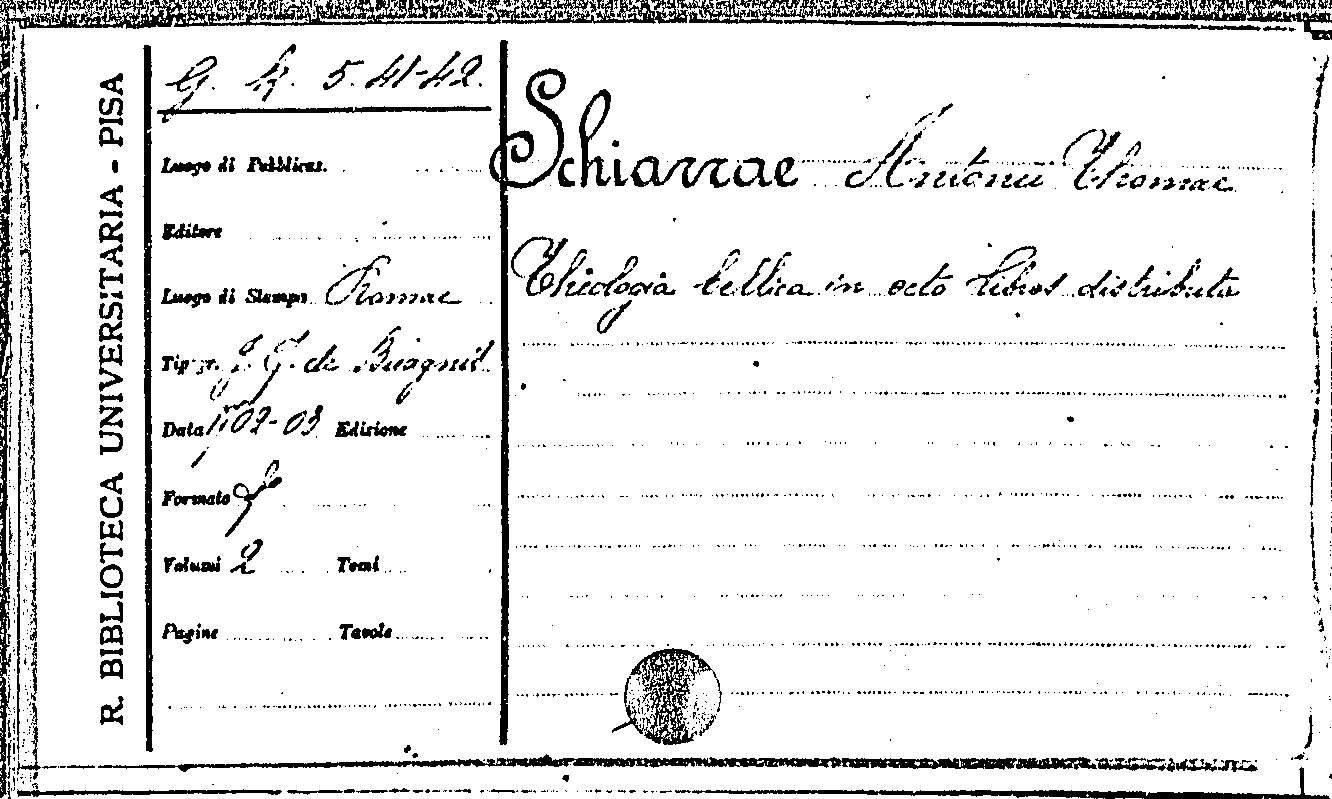 R. BIBLIOTECA UNIVERSITARIA - PISA
G. K. 5. 41-42.
Luogo di Pubblicaz.
Editore
Luogo di Stampa Romae
Tipogr. J. J. de
Data 1702-03 Edizione
Formato fo
Volumi 2 Tomi
Pagine Tavole
Schiarrae Antonii Thomae
Theologia bellica in octo libros distributa